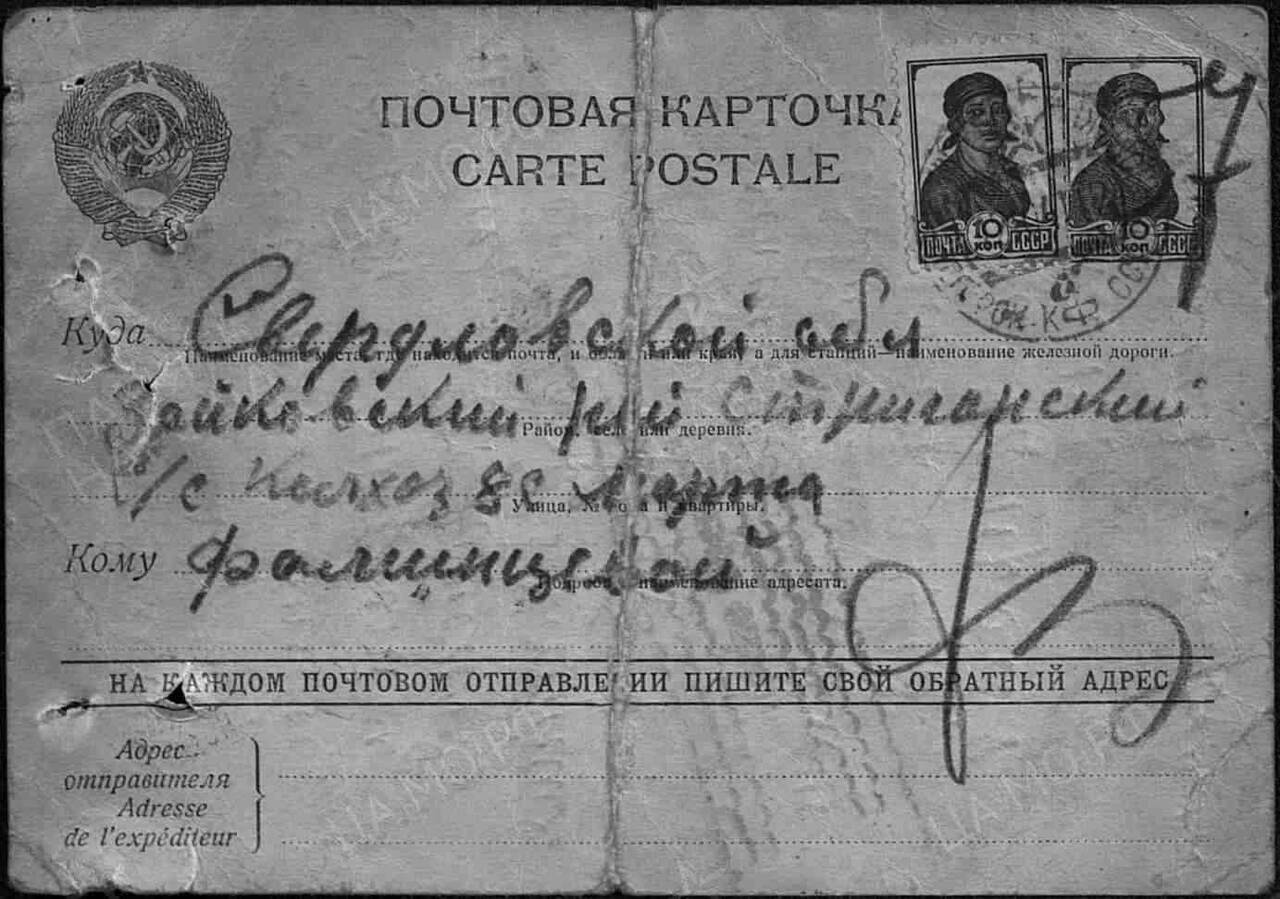 ПОЧТОВАЯ КАРТОЧКА
CARTE POSTALE
ПОЧТА 10 КОП СССР
ПОЧТА 10 КОП СССР
Куда Свердловской обл
Наименование места, где находится почта, и области или края, а для станций—наименование железной дороги.
Зайковский р/ий Стриганский
Район, село или деревня.
с/с Колхоз 8е Марта
Улица, № дома и квартиры.
Кому
Подробное наименование адресата.
НА КАЖДОМ ПОЧТОВОМ ОТПРАВЛЕНИИ ПИШИТЕ СВОЙ ОБРАТНЫЙ АДРЕС
Адрес
отправителя
Adresse
de l'expéditeur